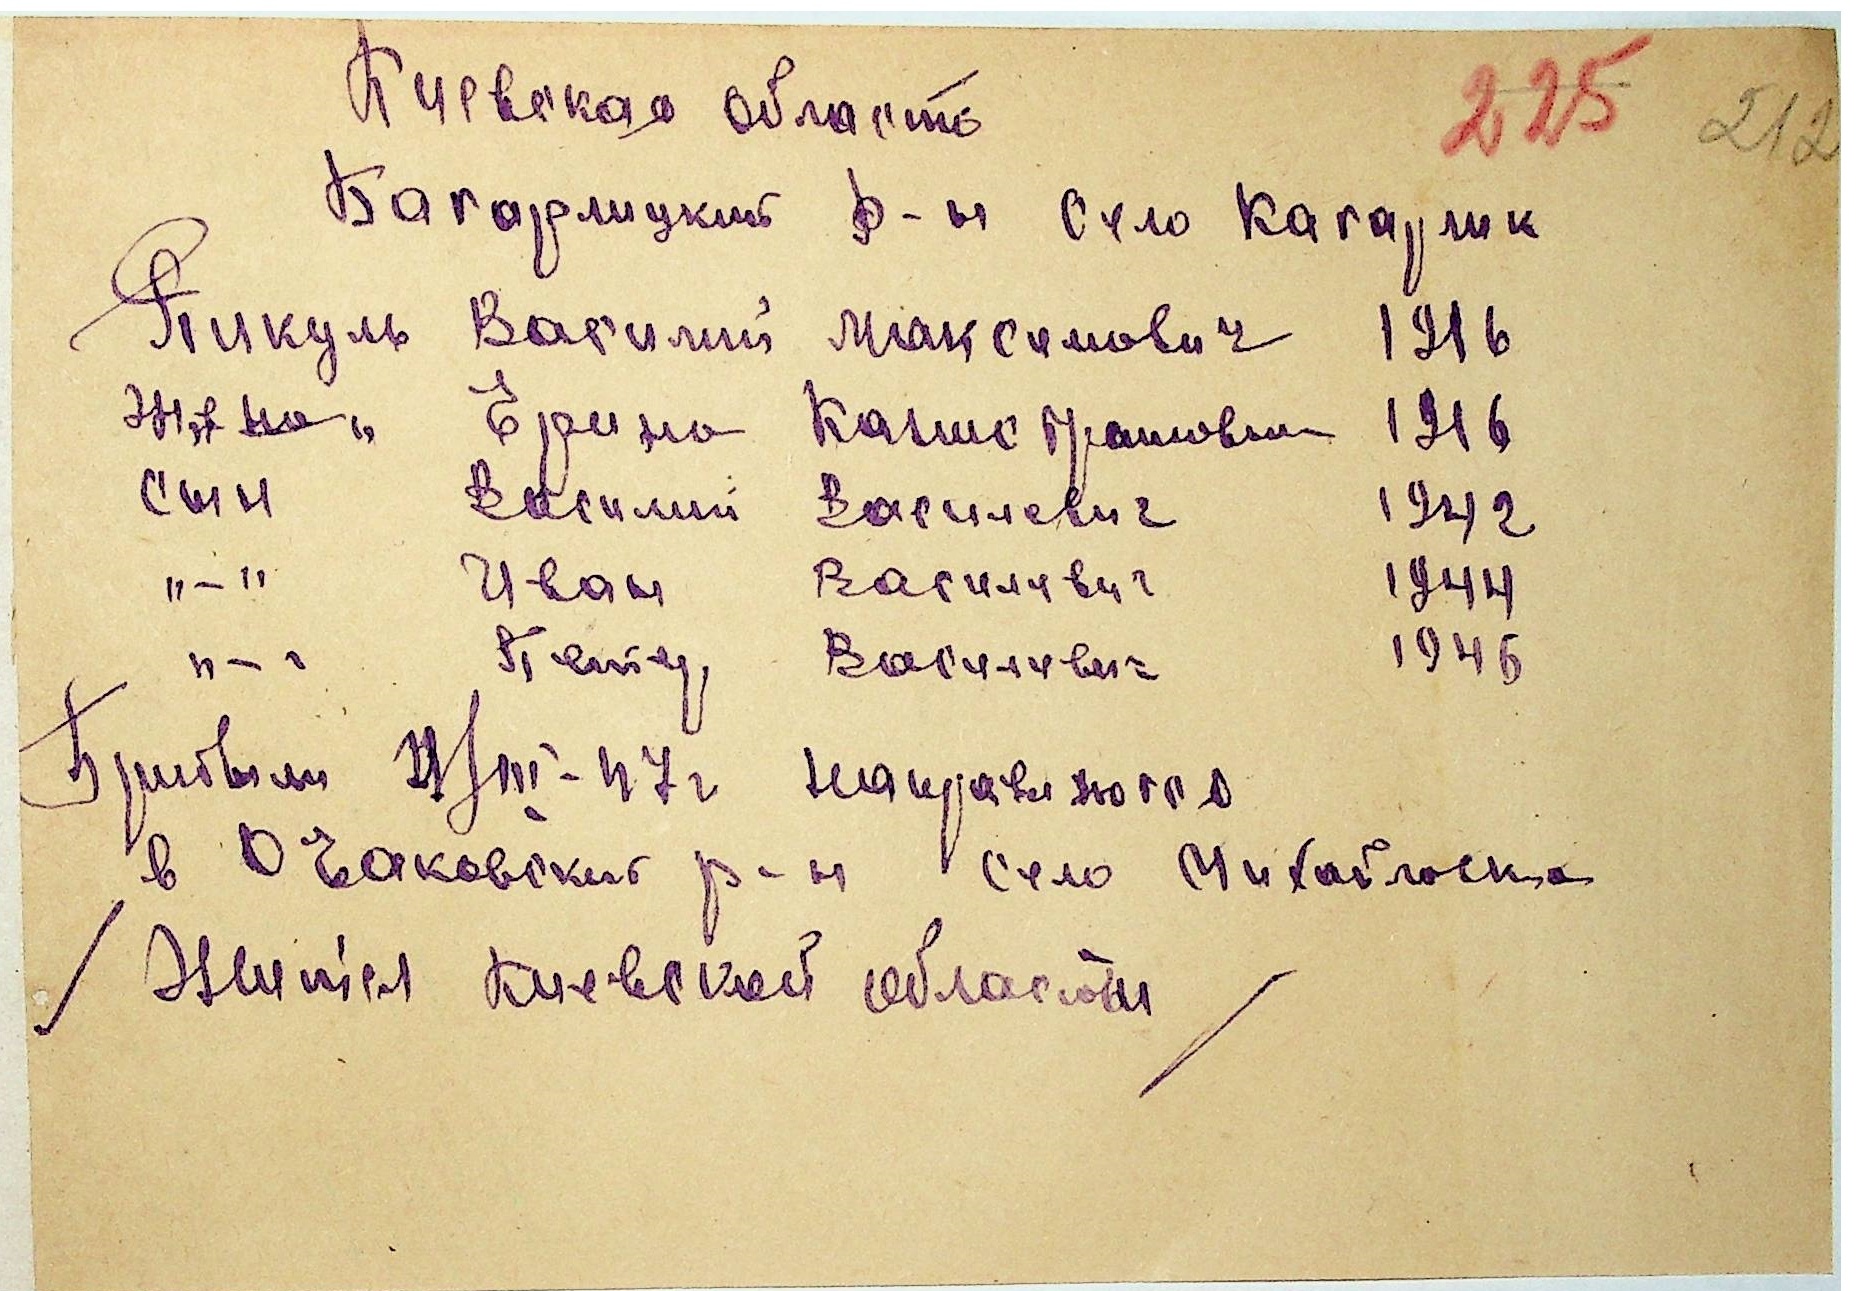 225 212
Киевская область
Кагарлицкий р-н село Кагарлик
Пикуль Василий Максимович 1916
Жена „ Ерина Калистратовна 1916
Сын Василий Василевич 1942
"-" Иван Василевич 1944
"-" Петр Василевич 1946
Прибыли III-47г направляются
в Очаковский р-н село Михайловка
/ Жител Киевской области /